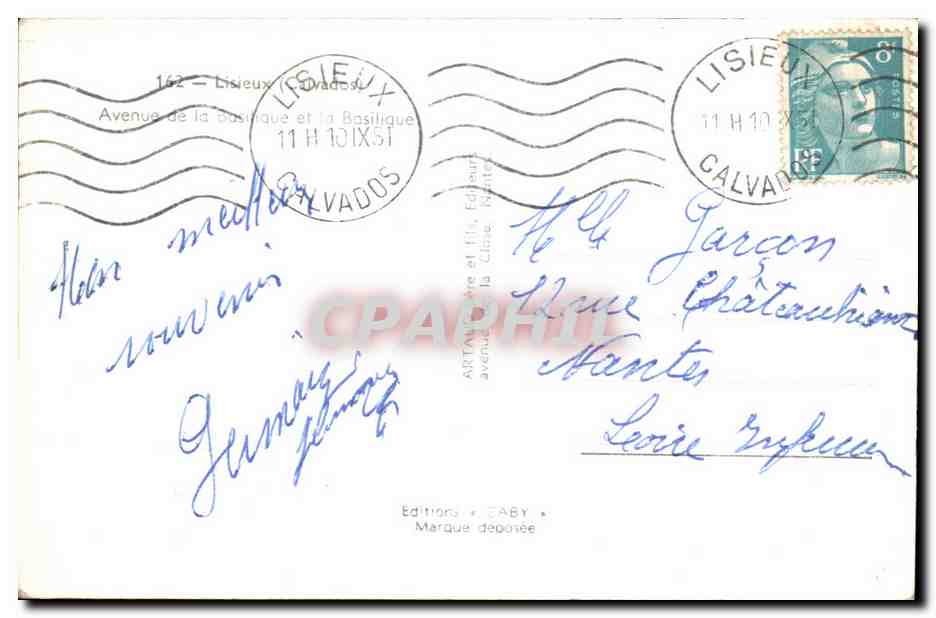 162 — Lisieux (Calvados)
Avenue de la Basilique et la Basilique
LISIEUX
11 H 10 IX 51
CALVADOS
LISIEUX
11 H 10 IX 51
CALVADOS
8
Mon meilleur
souvenir
Germaine
ARTAUD Père et Fils, Editeurs
avenue de la Close, Nantes
CPAPHIL
Mlle Garçon
12 rue Châteaubriand
Nantes
Loire Inférieure
Editions « GABY »
Marque déposée